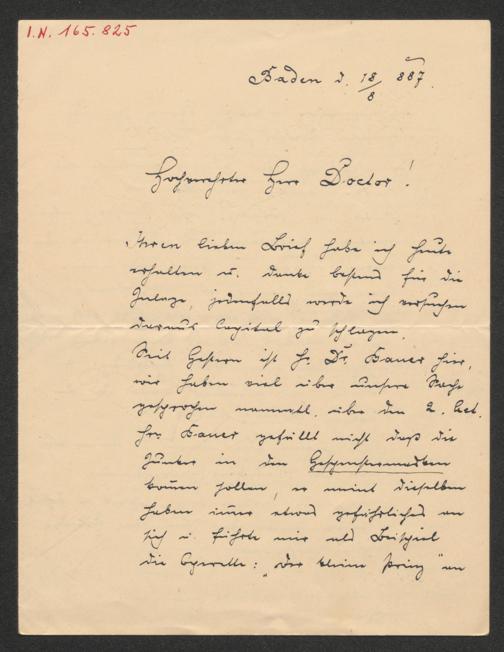 I.N. 165.825
Baden d. 18/8 887.
Hochverehrter Herr Doctor!
Ihren lieben Brief habe ich heute
erhalten u. danke bestens für die
Zulage, jedenfalls werde ich versuchen
daraus Capital zu schlagen.
Seit Gestern ist H. Dr. Bauer hier,
wir haben viel über unsere Sache
gesprochen namentl. über den 2. Act.
Hr. Bauer gefällt nicht daß die
Junker in den Gespenstermasken
kom̅en sollen, er meint dieselben
haben im̅er etwas gefährliches an
sich u. führte mir als Beispiel
die Operette: „Der kleine Prinz" an